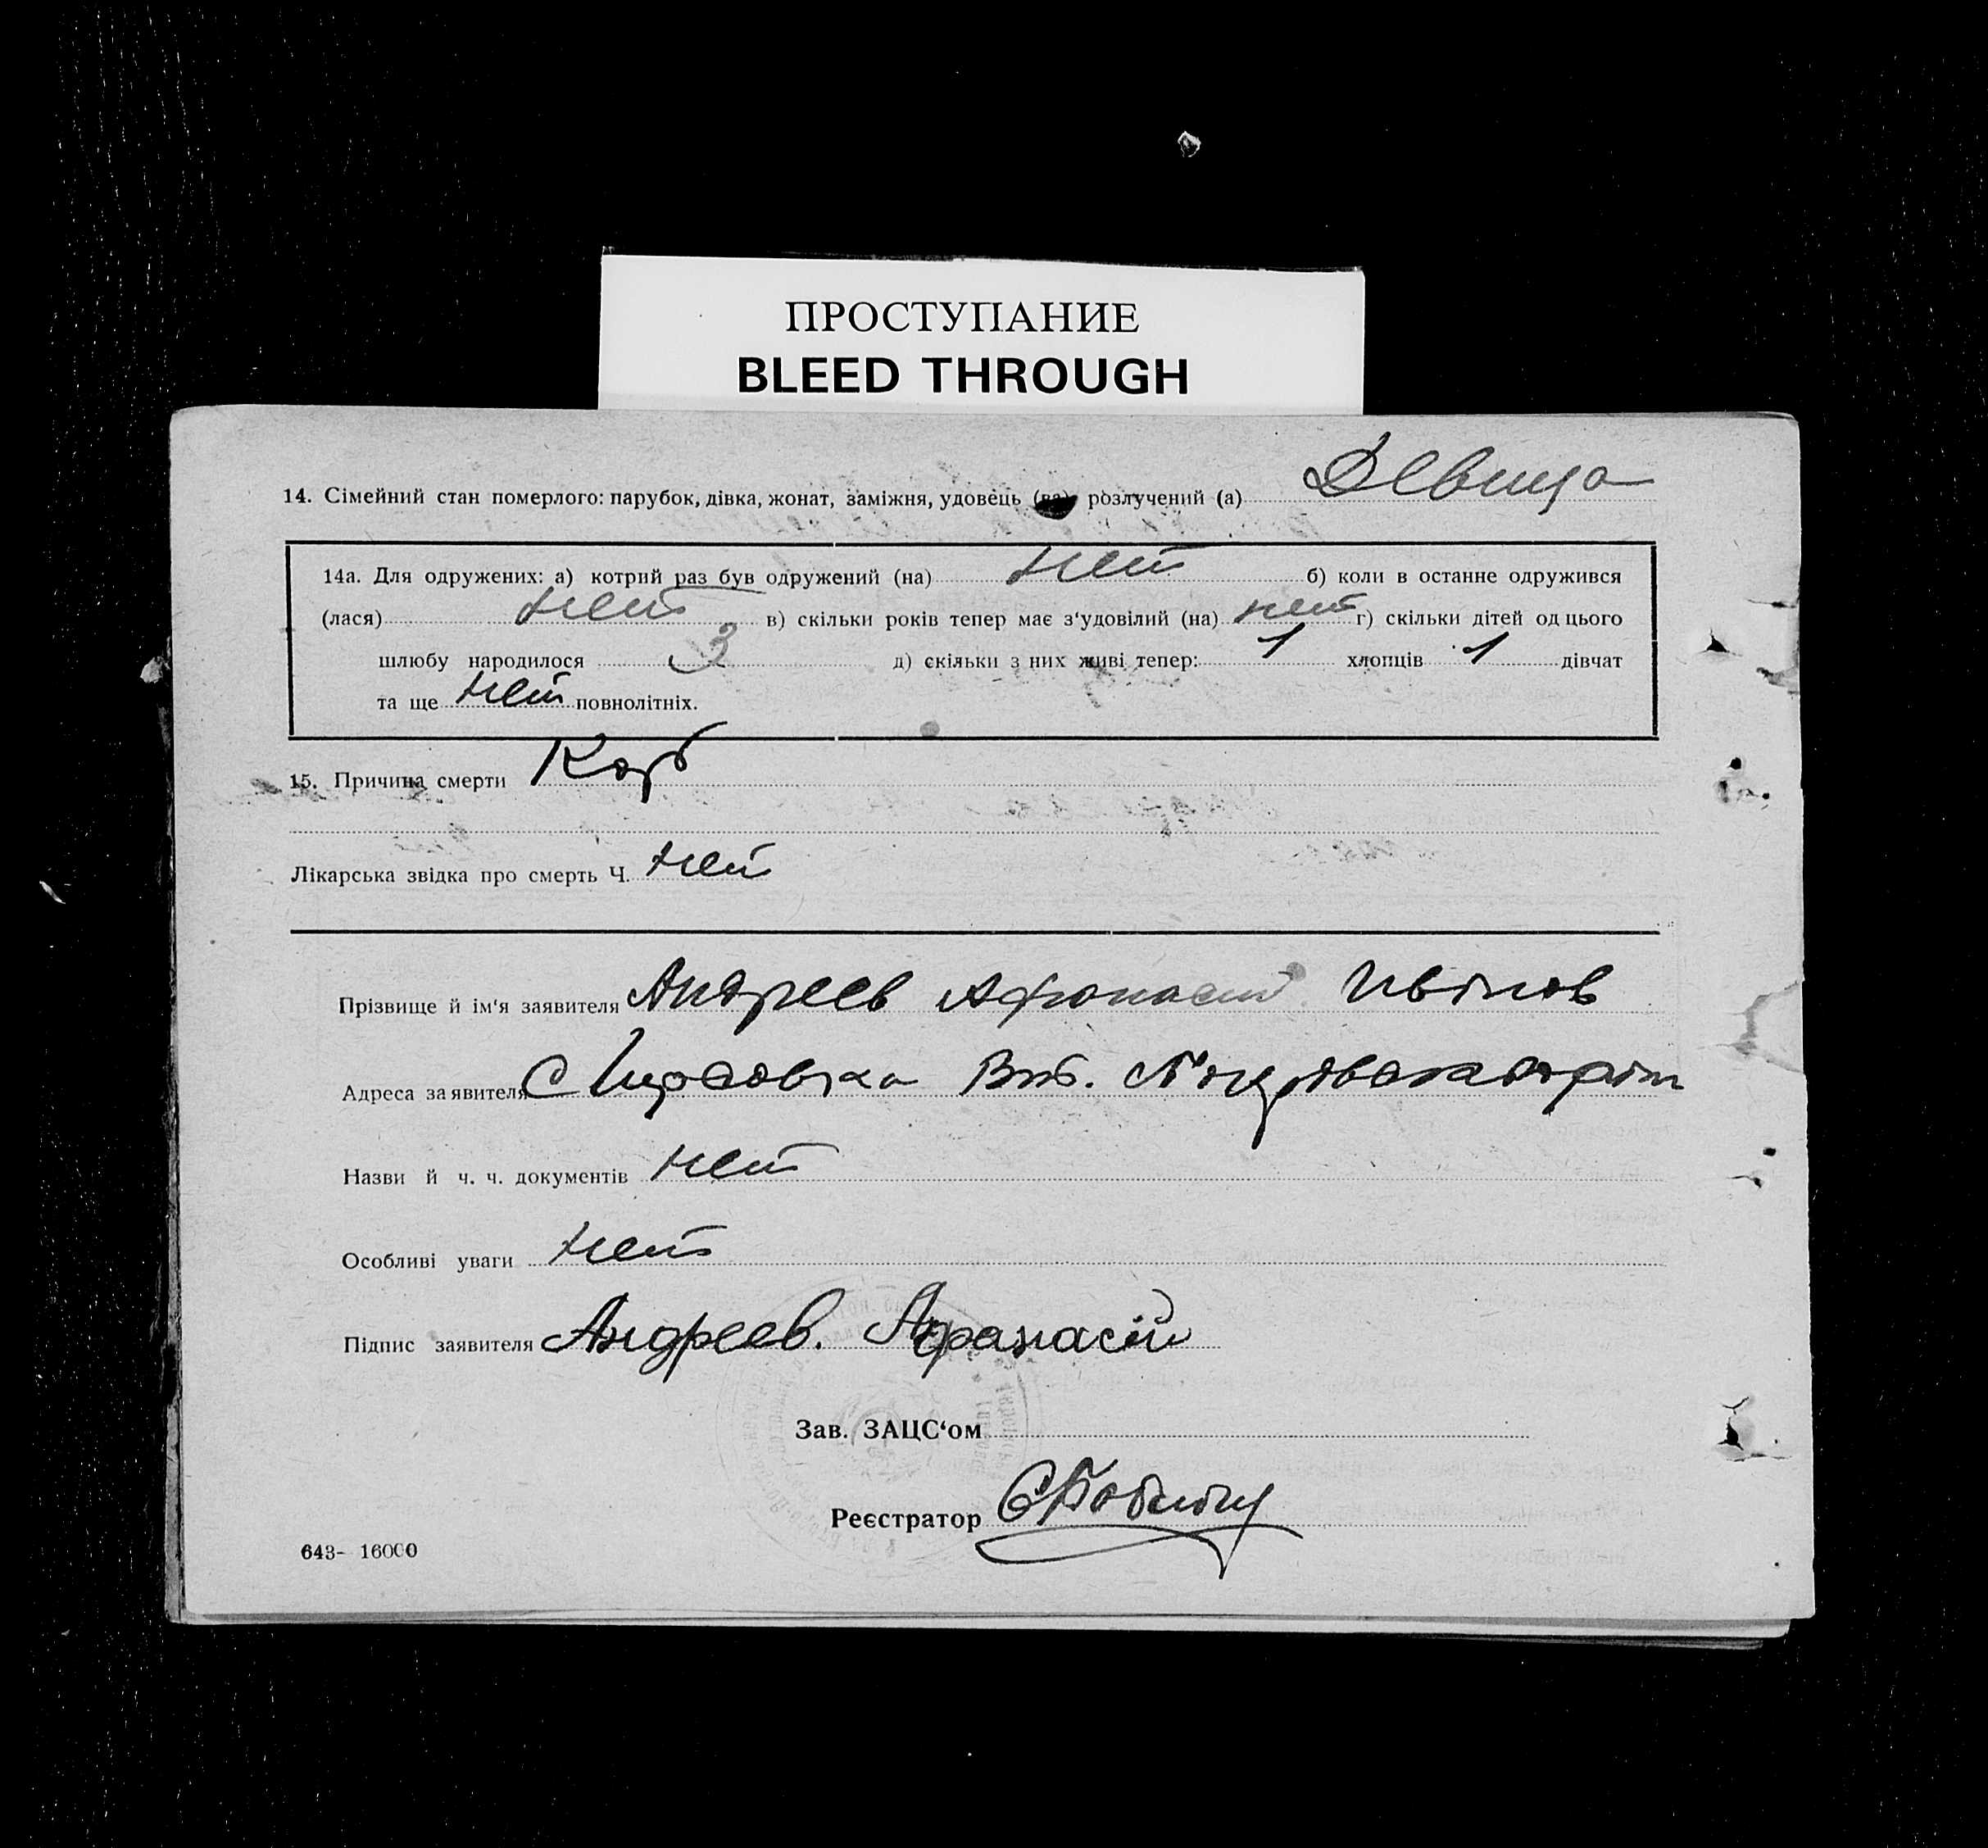 ПРОСТУПАНИЕ
BLEED THROUGH
14. Сімейний стан померлого: парубок, дівка, жонат, заміжня, удовець (ва) розлучений (а) Девица
14а. Для одружених: а) котрий раз був одружений (на) нет б) коли в останне одружився
(лася) нет в) скільки років тепер має з‘удовілий (на) нет г) скільки дітей од цього
шлюбу народилося 3 д) скільки з них живі тепер: 1 хлопців 1 дівчат
та ще нет повнолітніх.
15. Причина смерти Корь
Лікарська звідка про смерть Ч. нет
Прізвище й ім‘я заявителя Андреев Афонасий
Адреса заявителя С
Назви й ч. ч. документів нет
Особливі уваги нет
Підпис заявителя Андреев. Афанасій
Зав. ЗАЦС‘ом
Реєстратор
643- 16000